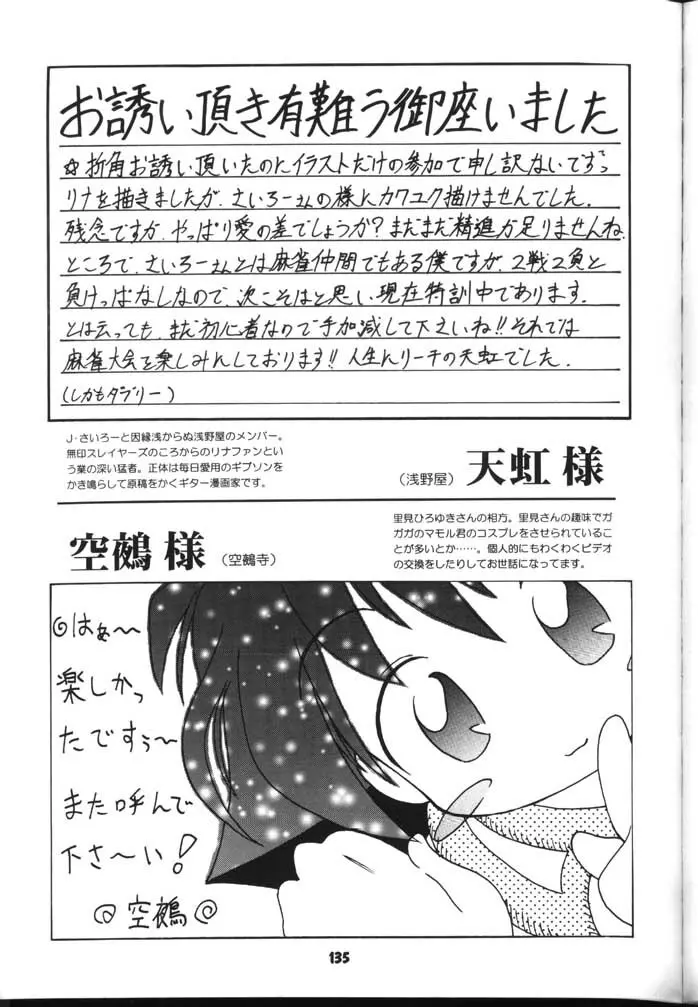 お誘い頂き有難う御座いました
☆折角お誘い頂いたのにイラストだけの参加で申し訳ないですっ
リナを描きましたが、さいろーさんの様にカワユク描けませんでした。
残念ですが、やっぱり愛の差でしょうか?まだまだ精進が足りませんね。
ところで、さいろーさんとは麻雀仲間でもある僕ですが、2戦2負と
負けっぱなしなので、次こそはと思い現在特訓中であります。
とは云っても、まだ初心者なので手加減して下さいね!!それでは
麻雀大会を楽しみにしております!!人生にリーチの天虹でした。
(しかもダブリー)
J・さいろーと因縁浅からぬ浅野屋のメンバー。
無印スレイヤーズのころからのリナファンとい
う業の深い猛者。正体は毎日愛用のギブソンを
かき鳴らして原稿をかくギター漫画家です。
(浅野屋) 天虹 様
空鵺 様 (空鵺寺)
里見ひろゆきさんの相方。里見さんの趣味でガ
ガガのマモル君のコスプレをさせられているこ
とが多いとか……。個人的にもわくわくビデオ
の交換をしたりしてお世話になってます。
◎はぁ〜
楽しかっ
たですぅ〜
また呼んで
下さ〜い!
◎空鵺◎
135